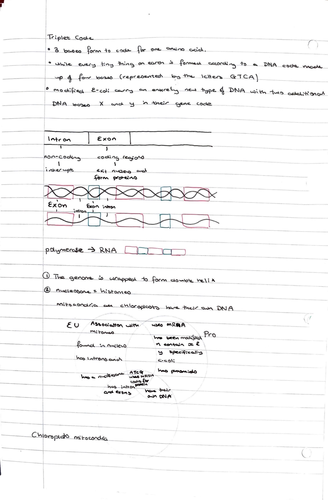 Triplet Code
• 3 bases form to code for one amino acid.
• while every living thing on earth is formed according to a DNA code made
up of four bases (represented by the letters GTCA)
• modified E-coli carry an entirely new type of DNA with two additional
DNA bases X and Y in their gene code
Intron Exon
non-coding coding regions
interrupt exit nucleus and
form proteins
Exon Exon intron
intron
polymerase → RNA
① The genome is wrapped to form double helix
② nucleosome = histones
mitochondria and chloroplasts have their own DNA
EU Association with uses mRNA
histones Pro
found in nucleus has been modified
contain X &
Y specifically
has introns and e-coli
has a nucleosome ATCG has plasmids
has introns
and exons have their
own DNA
Chloroplasts mitocondria